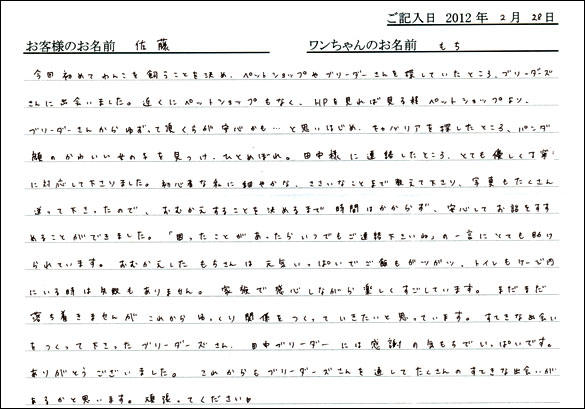 ご記入日 2012 年 2 月 28 日
お客様のお名前 佐藤 ワンちゃんのお名前 もち
今回初めてわんこを飼うことを決め、ペットショップやブリーダーさんを探していたところ、ブリーダーズ
さんに出会いました。近くにペットショップもなく、HPを見れば見る程 ペットショップより、
ブリーダーさんからゆずって頂くらが安心かも…と思いはじめ、キャバリアを探したところ、パンダ
顔のかわいい女の子を見つけ、ひとめぼれ。田中様に連絡したところ、とても優しく丁寧
に対応して下さりました。初心者な私に細やかな、ささいなことまで教えて下さり、写真もたくさん
送って下さったので、おむかえすることを決めるまで時間はかからず、安心してお話をすす
めることができました。「困ったことがあったらいつでもご連絡下さいね」の一言にとても助け
られています。おむかえした もちさんは 元気いっぱいでご飯もガツガツ、トイレもケージ内
にいる時は失敗もありません。 家族で感心しながら楽しくすごしています。 まだまだ
落ち着きませんが これから ゆっくり 関係をつくっていきたいと思っています。すてきな出会い
をつくって下さったブリーダーズさん、田中ブリーダーには感謝の気もちでいっぱいです。
ありがとうございました。 これからもブリーダーズさんを通してたくさんのすてきな出会いが
あるかと思います。頑張ってください♪